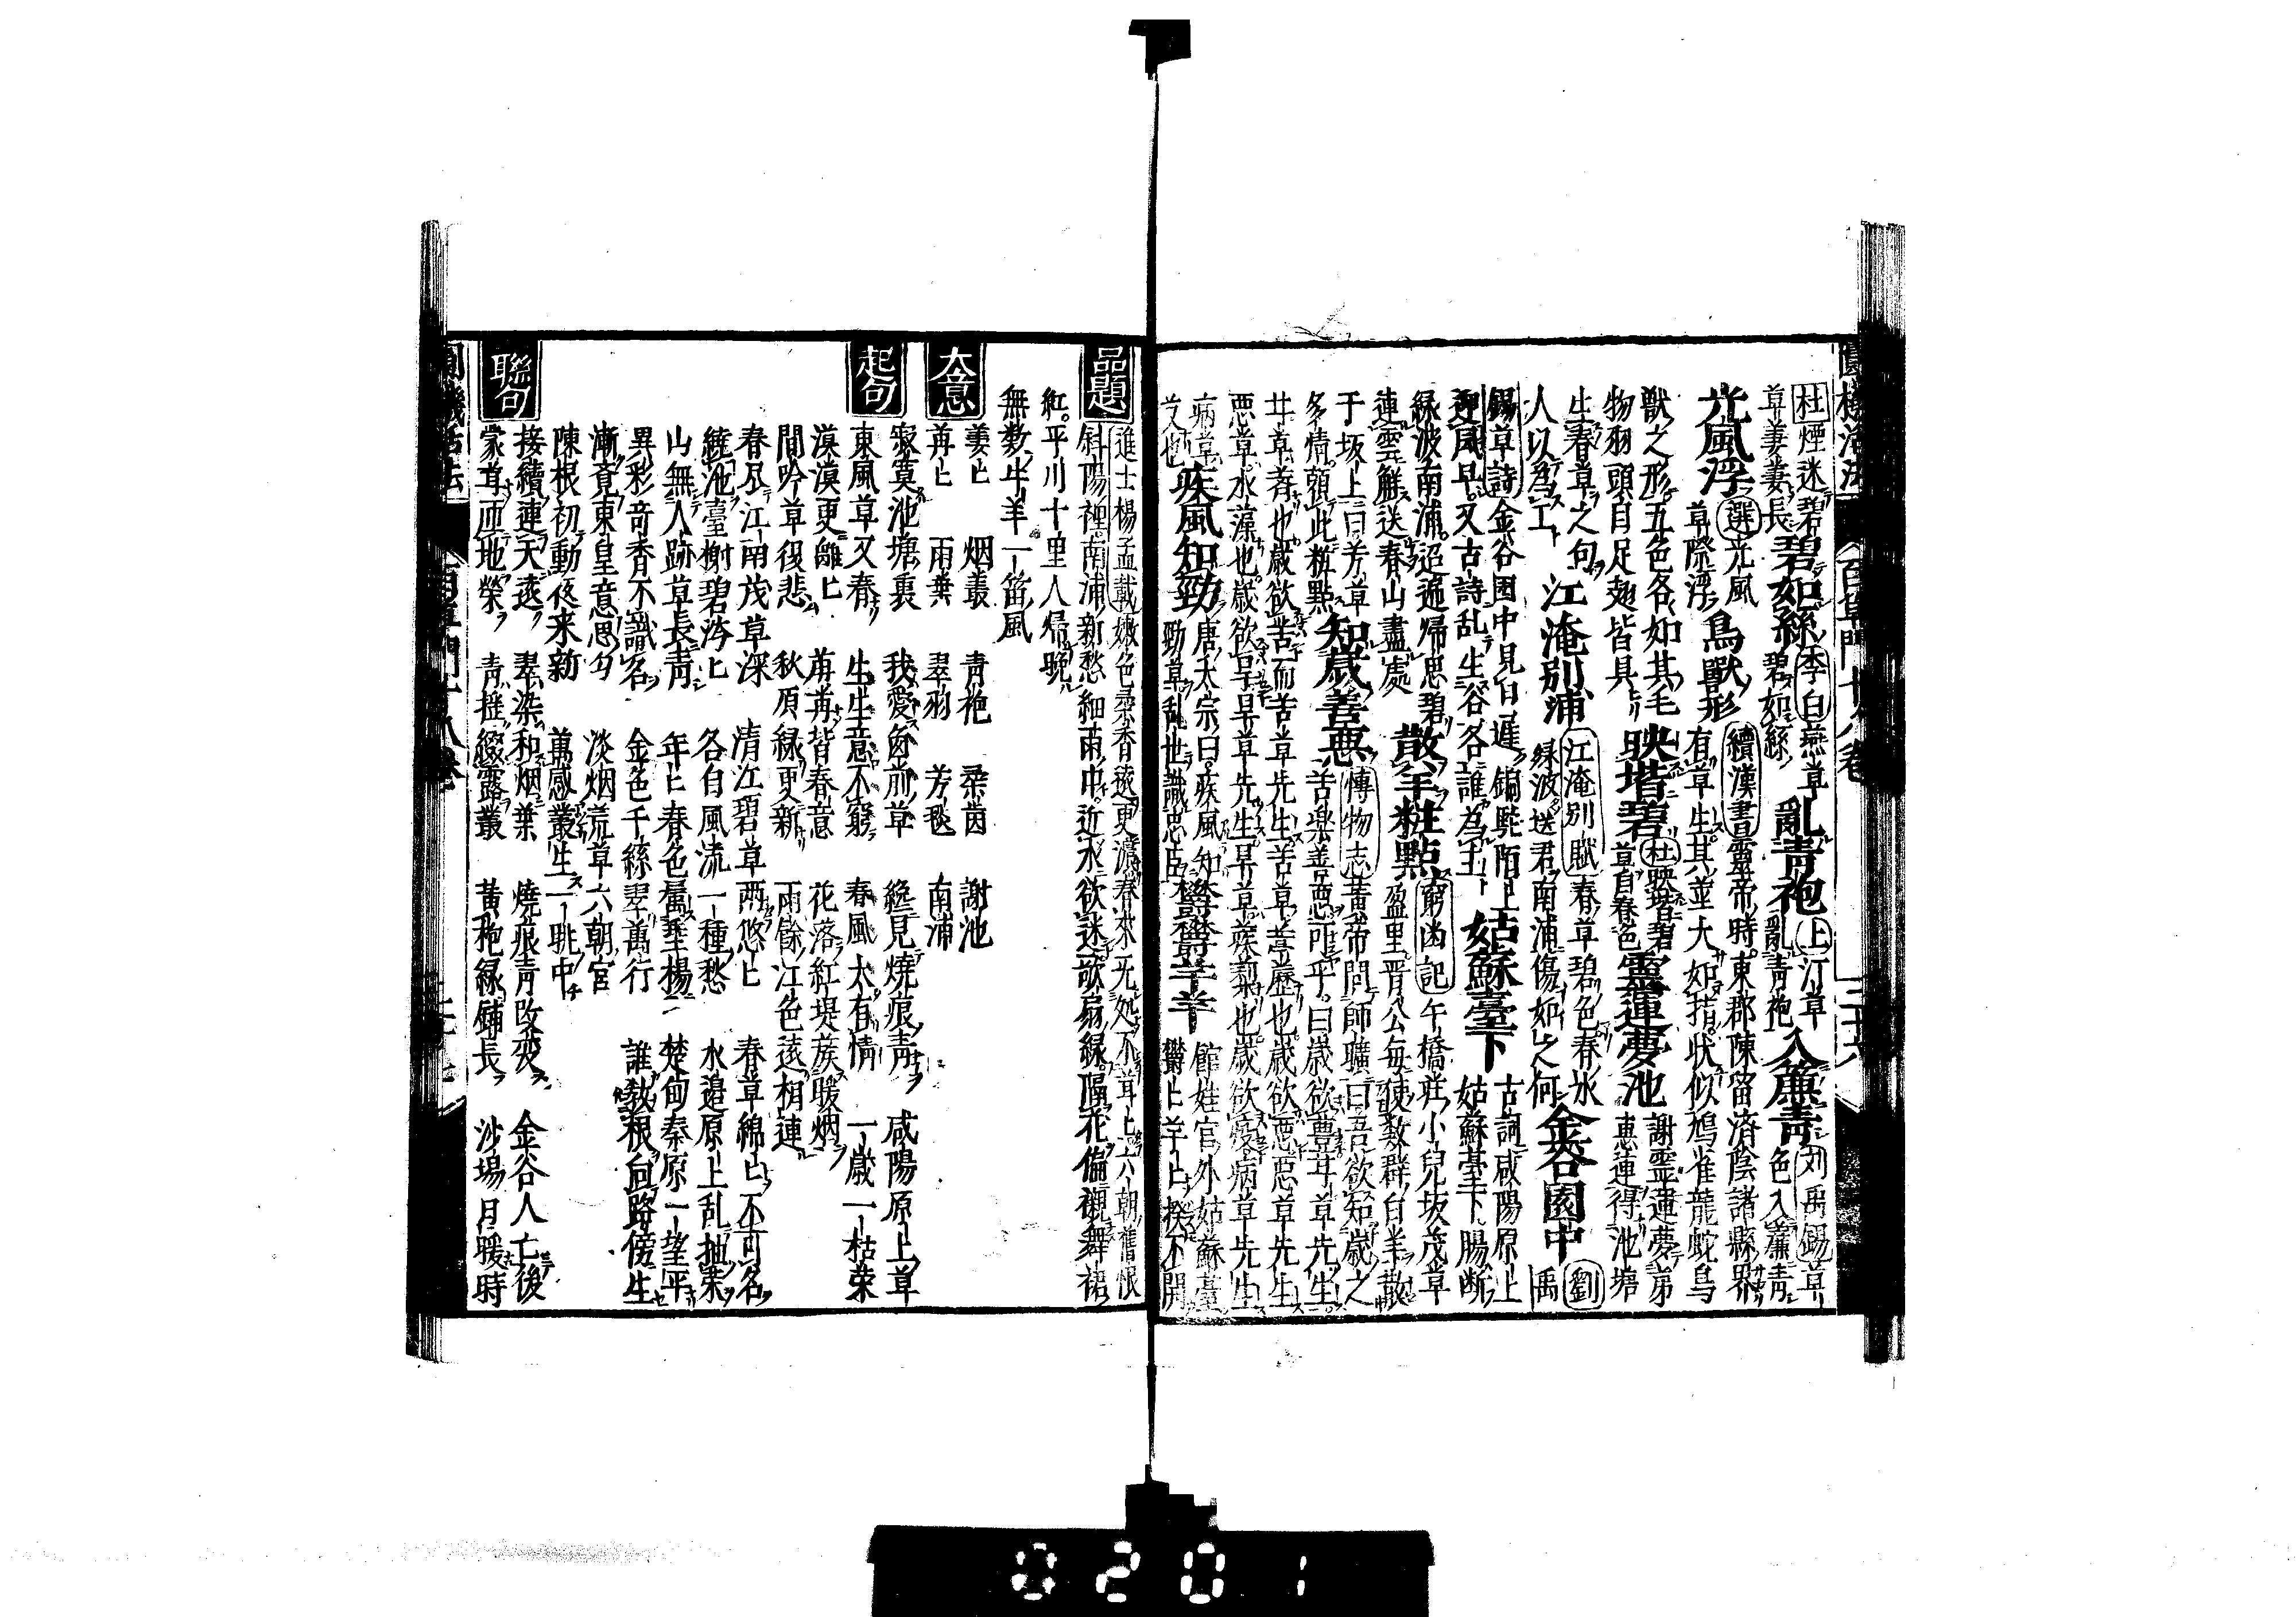 圓機活法 百草門 十八卷 三十六
杜煙迷碧草萋萋長 碧如絲 李白燕草碧如絲 亂青袍 上汀草亂青袍 入簾青 刘禹錫草色入簾青
光風浮 選光風草際浮 鳥獸形 續漢書靈帝時東郡陳留済陰諸縣界有草生其莖大如指状似鳩雀龍蛇鳥
獸之形五色各如其毛物羽頭目足翅皆具 映堦碧 杜映堦碧草自春色 靈運夢池 謝霊運夢弟惠連得池塘
生春草之句人以為工 江淹別浦 江淹別賦春草碧色春水緑波送君南浦傷如之何 金谷園中 劉禹
錫草詩金谷園中見日遲銅駝陌上迎風早又古詩乱生谷各誰為主 姑蘇臺下 古詞咸陽原上姑蘇䑓下腸断
緑波南浦迢遞帰思碧連雲觧送春山盡處 散羊粧點 窮幽記午橋莊小兒坂茂草盈里晋公毎使数群白羊散
于坂上曰芳草多情頼此粧點 知歳善惡 博物志黄帝問師曠曰吾欲知歳之苦楽善悪可乎曰歳欲豊甘草先生
甘草薺也歳欲苦而苦草先生苦草葶藶也歳欲悪悪草先生
悪草水藻也歳欲旱旱草先生旱草蒺藜也歳欲疫病草先生
病草艾也 疾風知勁 唐太宗曰疾風知勁草乱世識忠臣 欝欝芊芊 館娃宮外姑蘇臺欝上芊上揆不開
品題 進士楊孟載嫩色尋香遠更濃春来无処不茸上六朝舊恨
斜陽裡南浦新愁細雨中近水欲迷歌扇緑隔花偏襯舞裙
紅平川十里人帰晩
無数牛羊一笛風
大意 萋上 烟叢 青袍 柔茵 謝池
苒上 雨葉 翠羽 芳毯 南浦
起句 寂寞池塘裏 我愛匈前草 纔見燒痕青 咸陽原上草
東風草又春 生生意不窮 春風太有情 一歳一枯栄
漠漠更離上 苒苒皆春意 花落紅堤蔟暖烟
間吟草復悲 秋原緑更新 雨餘江色遠相連
春風江南茂草深 清江碧草両悠上 春草綿上不可名
繞池臺榭碧沵上 各自風流一種愁 水邉原上乱抽栄
山無人跡草長青 年上春色属垂楊 楚甸秦原一望平
異彩竒香不識名 金色千絲翠萬行 誰教根向路傍生
漸覓東皇意思匀 淡烟荒草六朝宮
陳根初動夜来新 萬感叢生一眺中
聯句 接續連天遠 翠染和烟葉 燒痕青改変 金谷人亡後
蒙茸匝地榮 青揺綴露叢 黄袍緑鋪長 沙場月暖時
圓機活法 百草門十八卷
0201